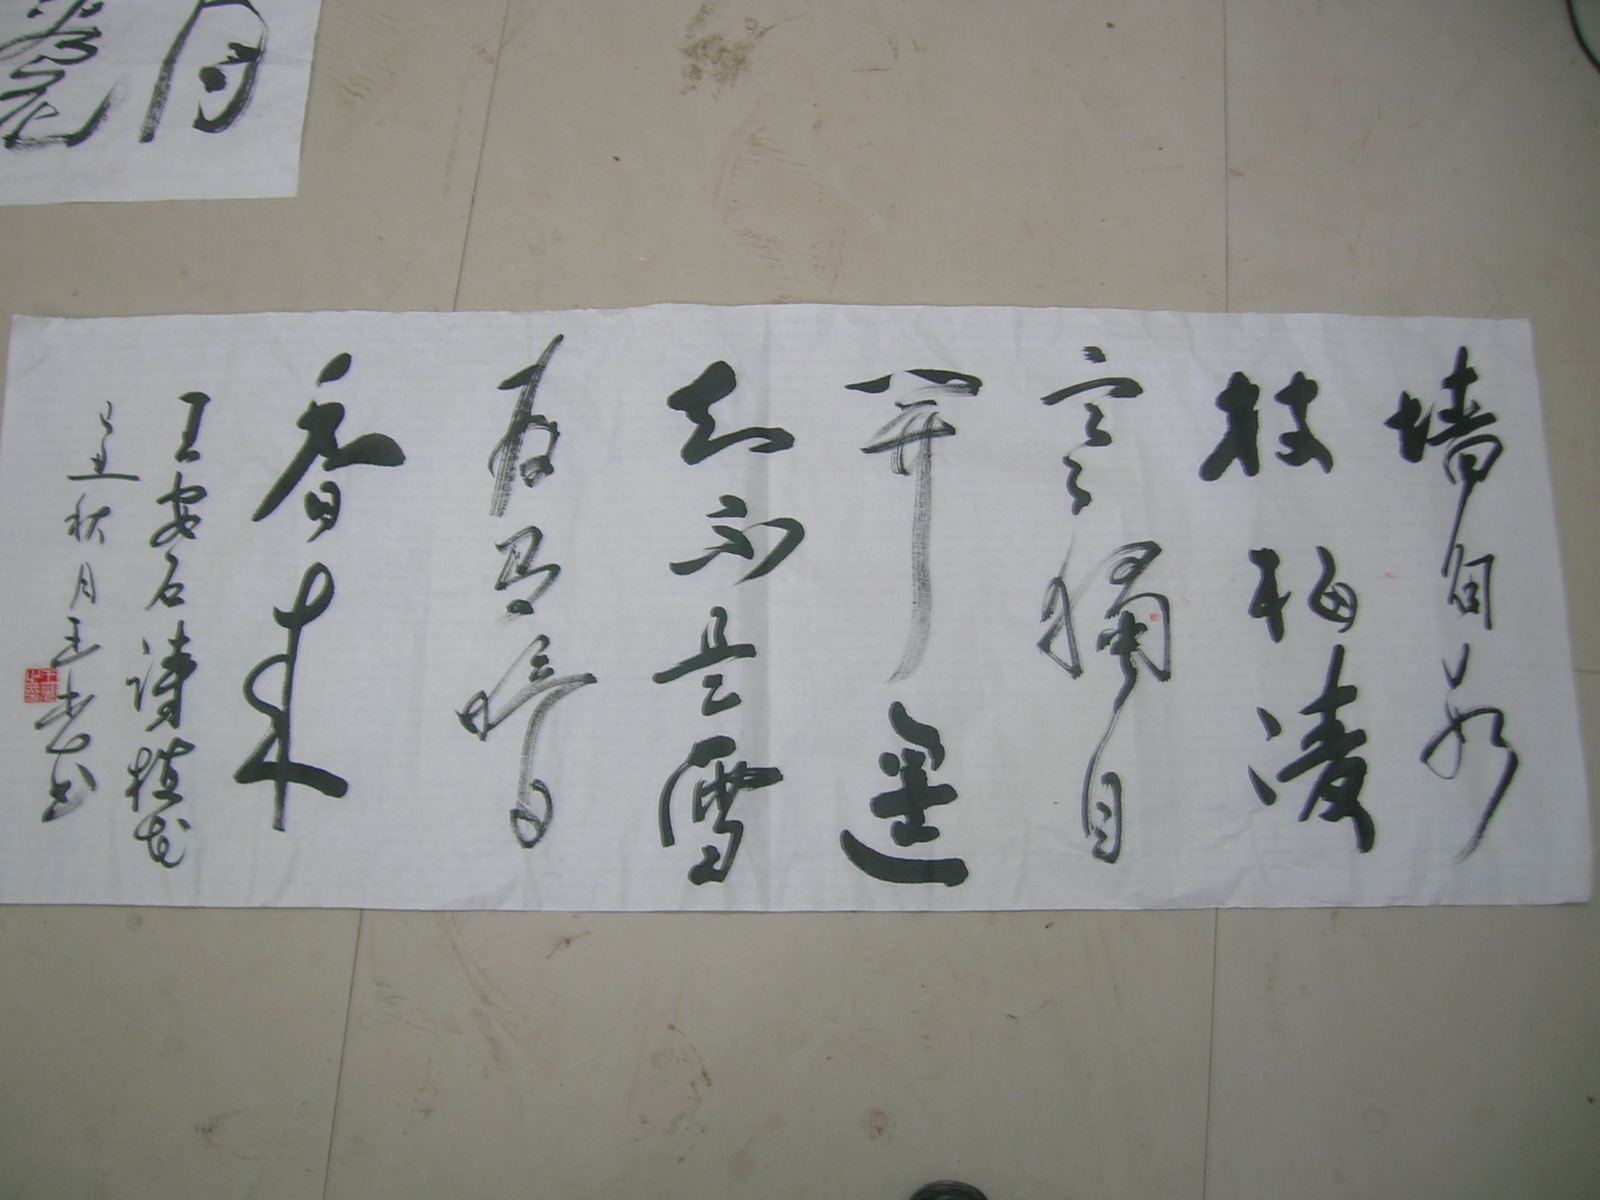 墙角数
枝梅凌
寒獨自
開遥
知不是雪
为有暗
香来
王安石詩梅花
己丑秋月王
书